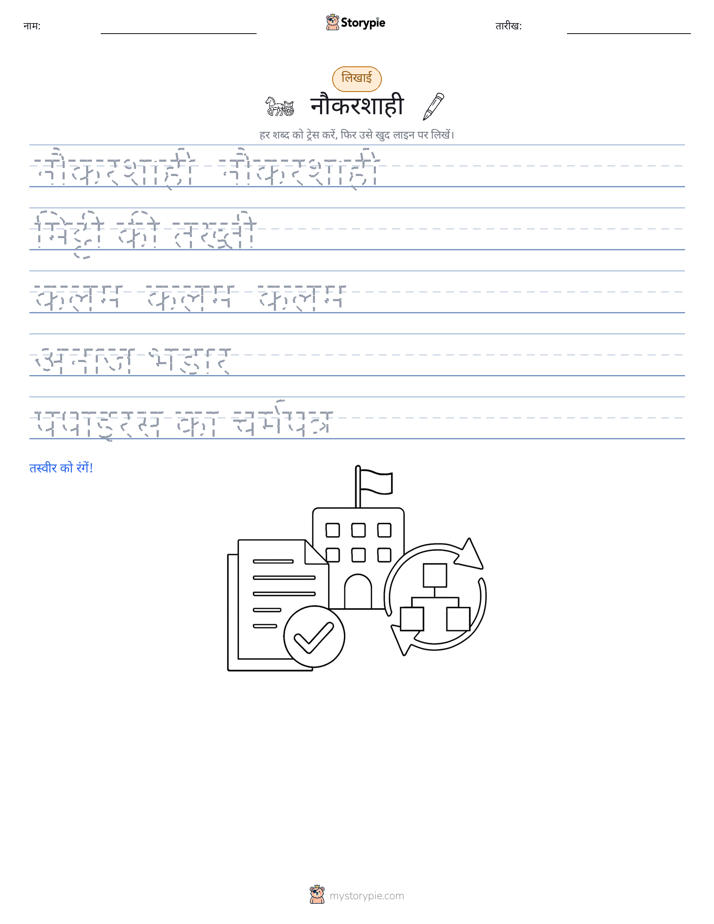 नाम:
Storypie
तारीख:
लिखाई
नौकरशाही
हर शब्द को ट्रेस करें, फिर उसे खुद लाइन पर लिखें।
नौकरशाही नौकरशाही
मिट्टी की तख्ती
कलम कलम कलम
अनाज भडार
पपाइरस का चर्मपत्र
तस्वीर को रंगें!
mystorypie.com